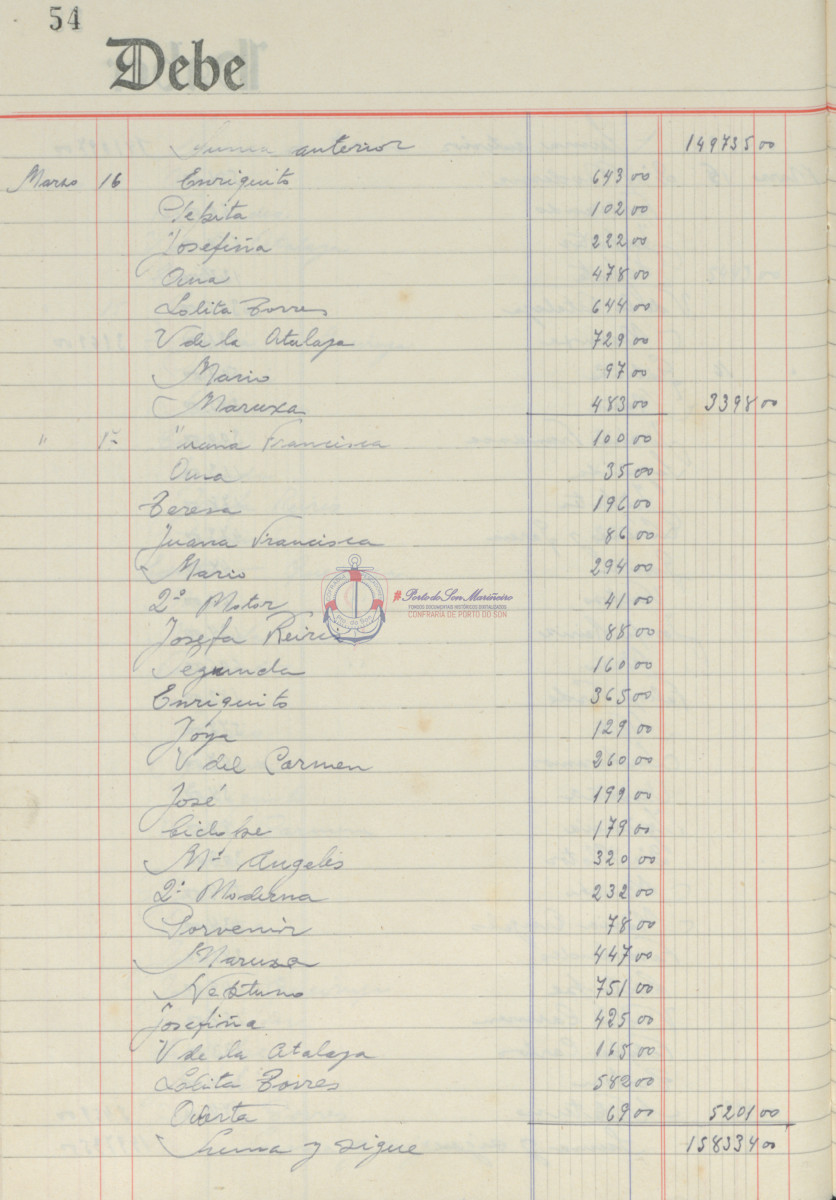 54
Debe
Suma anterior 149735 00
Marzo 16 Enriquito 643 00
Pepita 102 00
Josefiña 222 00
Ana 478 00
Lolita Torres 644 00
V de la Atalaya 729 00
Mario 97 00
Maruxa 483 00 3398 00
" Juana Francisca 100 00
Ana 35 00
Teresa 196 00
Juana Francisca 86 00
Mario 294 00
2º Motor 41 00
Josefa 88 00
Segunda 160 00
Enriquito 365 00
Joya 129 00
V del Carmen 260 00
José 199 00
Ciclope 179 00
Mª Angeles 320 00
2ª Moderna 232 00
Porvenir 78 00
Maruxa 447 00
Neptuno 751 00
Josefiña 425 00
V de la Atalaya 165 00
Lolita Torres 582 00
69 00 5201 00
Suma y sigue 158334 00
#PortodoSonMariñeiro
FONDOS DOCUMENTAIS HISTÓRICOS DIXITALIZADOS
CONFRARÍA DE PORTO DO SON